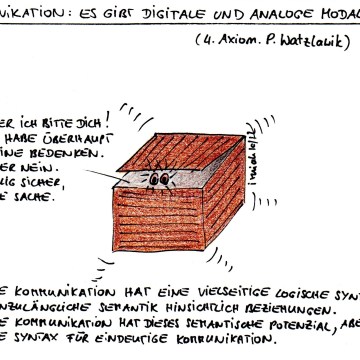 NIKATION: ES GIBT DIGITALE UND ANALOGE MODAL
(4. Axiom. P. Watzlawik)
ER ICH BITTE DICH!
HABE ÜBERHAUPT
INE BEDENKEN.
ER NEIN.
LIG SICHER,
E SACHE.
E KOMMUNIKATION HAT EINE VIELSEITIGE LOGISCHE SYNT
NZULÄNGLICHE SEMANTIK HINSICHTLICH BEZIEHUNGEN.
E KOMMUNIKATION HAT DIESES SEMANTISCHE POTENZIAL, ABE
E SYNTAX FÜR EINDEUTIGE KOMMUNIKATION.